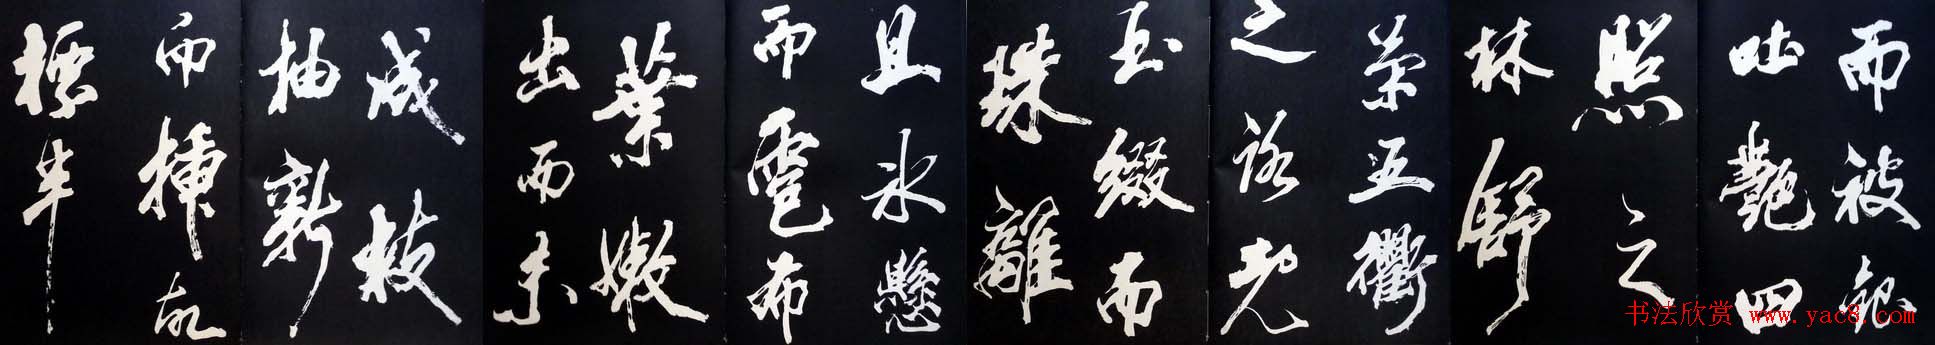 而被銀
吐艷四
照之
林舒
榮五衢
之路既
玉綴而
珠離
且氷懸
而雹布
葉嫩
出而未
成枝
抽新
而插故
標半
书法欣赏
www.yac8.com